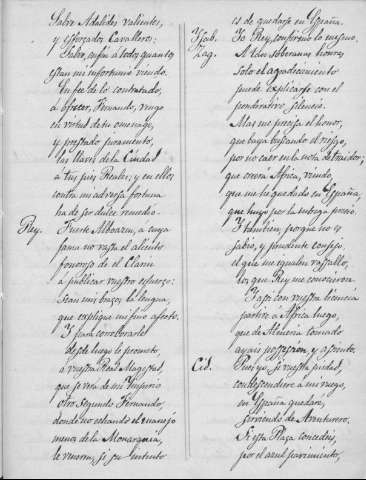 Salve Adalides valientes,
y esforzados Cavalleros:
Salve, enfin á todos quantos
estan mi infortunio viendo.
En fee de lo contratado,
á ofrecer, Fernando, vengo
en virtud de tu omenage,
y prestado juramento,
las llaves de la Ciudad
a tus pies Reales; y en ellos
contra mi adversa fortuna
ha de ser dulce remedio.
Rey. Fuerte Alboazen, a cuya
fama no vasta el aliento
sonoroso de el Clarin
á publicar vuestro esfuerzo:
sean mis brazos la lengua,
que explique mi fino afecto.
Y para corroborarle
desde luego le prometo,
á vuestra Real Magestad,
que sera de mi Imperio
otro segundo Fernando,
donde no echando el manejo
menos de la Monarquia,
le vuerva, si su intento
es de quedarse en España.
Ysab. Yo Rey, confirmo lo mesmo.
Zag. A tan soberanas honras,
solo el agradecimiento
puede explicarse con el
ponderativo silencio.
Mas me precisa el honor,
que vaya buscando el riesgo,
por no caer en la nota de traidor;
que creera Africa, viendo,
que me he quedado en España,
que tuvo por la entrega precio.
Y tambien, porque no es
sabio, y prudente consejo,
el que me igualen vassallo,
los que Rey me conocieron.
Y assi con vuestra licencia
partire a Africa luego,
que de Almeria tomado
ayais possesion, y assiento.
Cid. Pues yo, si vuestra piedad,
correspondiere á mi ruego,
en España quedare,
sirviendo de Aventurero.
Si esta Plaza concedeis,
por el azul pavimento,